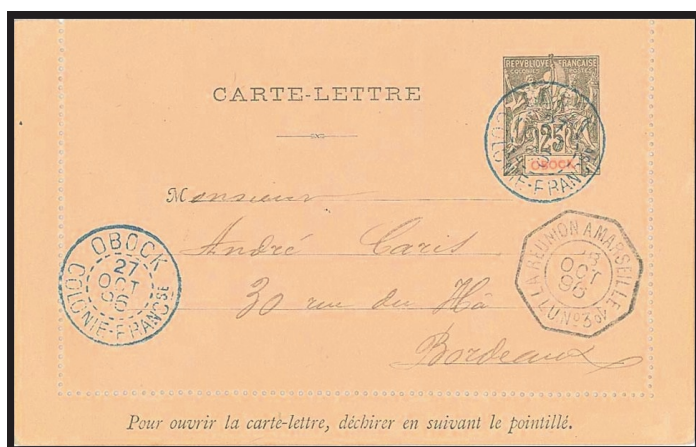 REPUBLIQUE FRANÇAISE
COLONIES POSTES
25
OBOCK
COLONIE-FRANÇSE
CARTE-LETTRE
Monsieur
André Caris
30 rue du Hâ
Bordeaux
OBOCK
27
OCT
96
COLONIE-FRANÇSE
LA REUNION A MARSEILLE
OCT
96
LU Nº3
Pour ouvrir la carte-lettre, déchirer en suivant le pointillé.